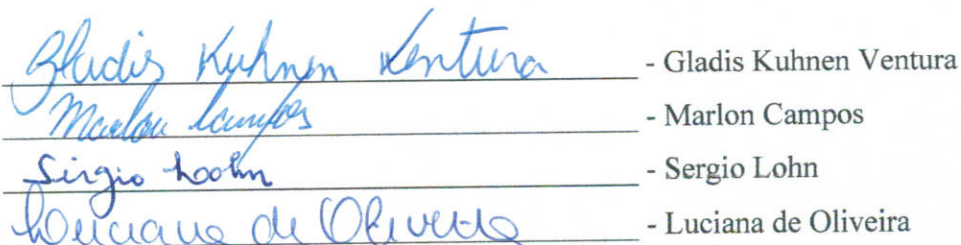 Gladis Kuhnen Ventura - Gladis Kuhnen Ventura
Marlon Campos - Marlon Campos
Sérgio Loohn - Sergio Lohn
Luciana de Oliveira - Luciana de Oliveira